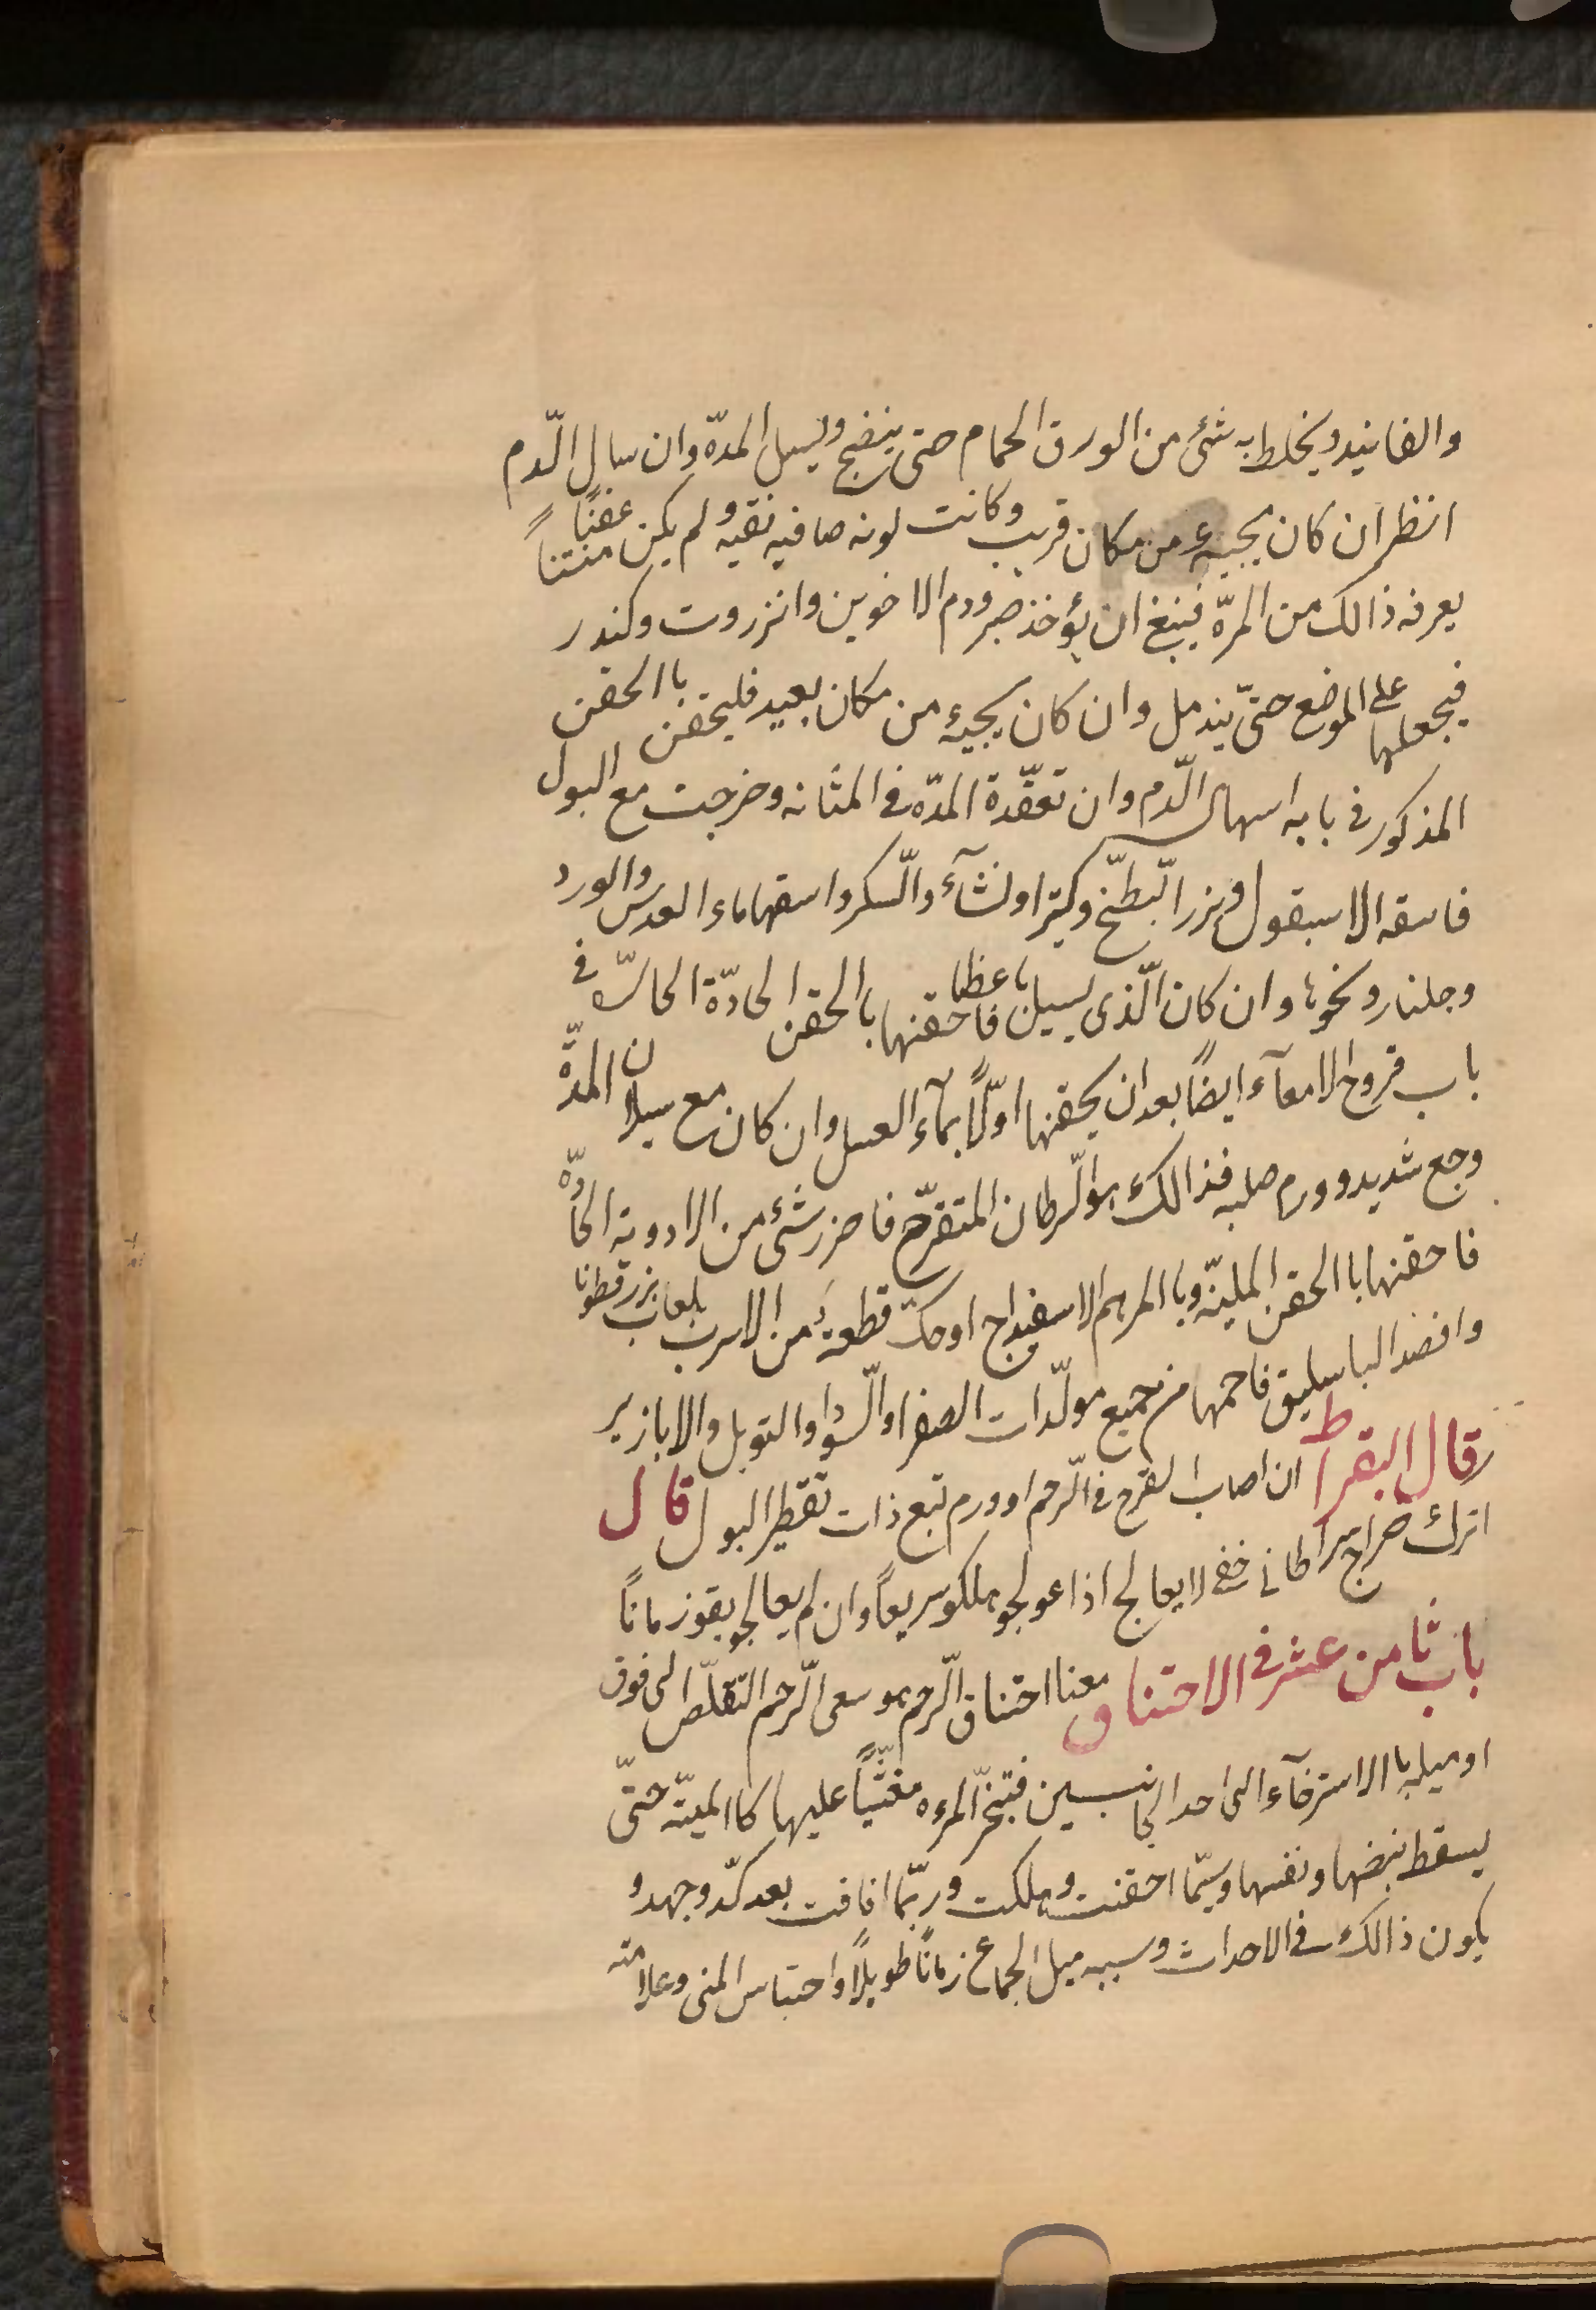 والفانيد ويخلط به شئ من الورق الحمام حتى ينضج ويسيل المدّة وان سال الّدم
انظر ان كان يجيء من مكان قريب وكانت لونه صافيه نقيه ولم يكن عفنًا منتنًا
يعرفه ذالك من المرّة فينبغ ان يؤخذ صبر ودم الاخوين وانزروت وكندر
فيجعلها على الموضع حتّى يندمل وان كان يجيء من مكان بعيد فليحقن باالحقن
المذكور في بابه اسهال الّدم وان تعقّدة المدّة في المثانه وخرجت مع البول
فاسقه الاسبقول وبزر الّبطّيخ وكيترا ونشآء والّسكر واسقها ماء العدس والورد
وجلنار ونحوها وان كان الّذى يسيل باعظا فاحقنها باالحقن الحادّة الحاسّ في
باب قروح الامعآء ايضاً بعد ان يحقنها اوّلاً بمآء العسل وان كان مع سيلان المدّة
وجع شديد وورم صلبه فذالك هو الّسرطان المتقرّح فاحزر شئ من الادوية الحادّه
فاحقنها باالحقن المليّنه وباالمرهم الاسفيداج او حكّ قطعةً من الاسرب بلعاب بزر قطونا
وافصد الباسليق فاحمها من جميع مولّدات الصفرا والّسودا والتوبل والابازير
قال البقراط ان اصاب القرح في الّرحم او ورم تبع ذات تقطير البول قال
اترك خراج سراطاني خفى لا يعالج اذا عولجو هلكو سريعاً وان لم يعالجو بقوز ماناً
باب ثامن عشر في الاختناق معنا اختناق الّرحم هو سعى الّرحم التقلّص الى فوق
او ميله باالاسترخآء الى احد الجانبسين فتبخرّ المرءه مغشّيّاً عليها كاالميّته حتّى
يسقط نبضها ونفسها وسيّما احقنت وهلكت وربّما افاقت بعد كدّ وجهد و
يكون ذالك في الاحداث وسببه ميل الجماع زماناً طويلاً واحتباس المنى وعلامته